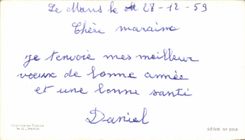 Le Mans le 28-12-59
Chère marraine
je t'envoie mes meilleur
vœux de bonne année
et une bonne santé
Daniel